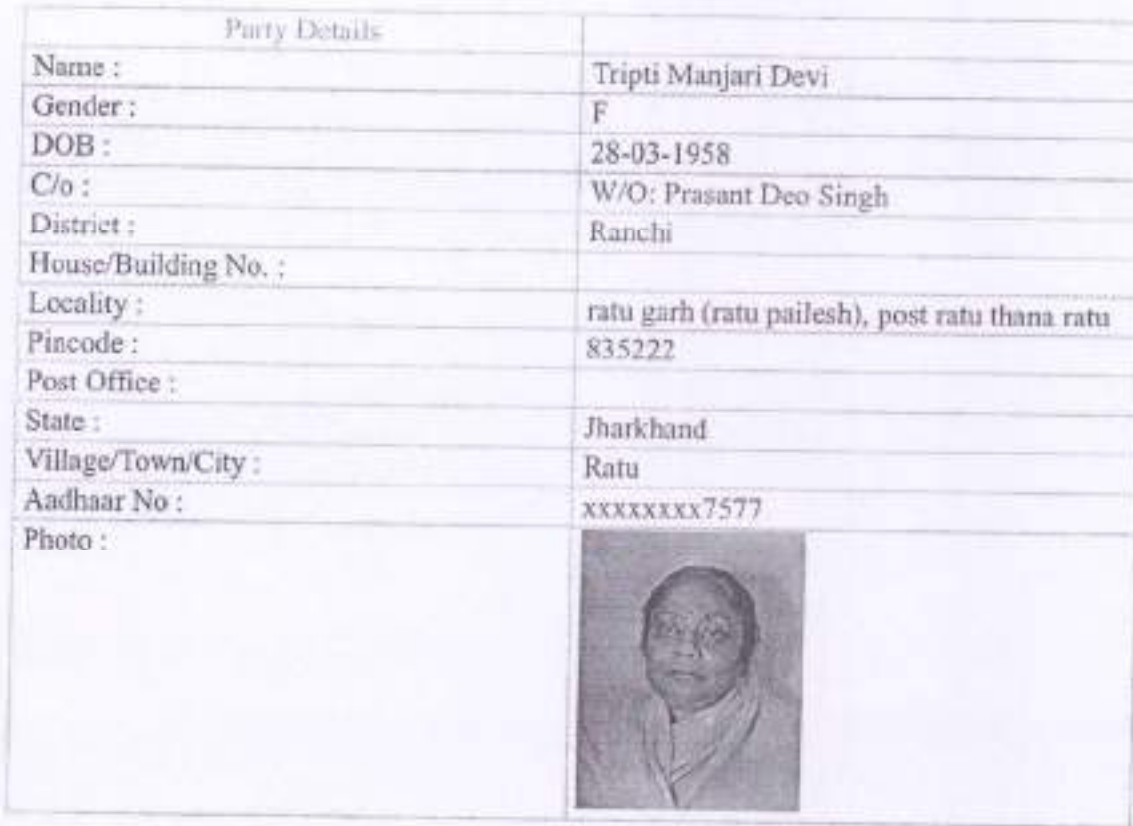 Party Details
Name :	Tripti Manjari Devi
Gender :	F
DOB :	28-03-1958
C/o :	W/O: Prasant Deo Singh
District :	Ranchi
House/Building No. :
Locality :	ratu garh (ratu pailesh), post ratu thana ratu
Pincode :	835222
Post Office :
State :	Jharkhand
Village/Town/City :	Ratu
Aadhaar No :	xxxxxxxx7577
Photo :